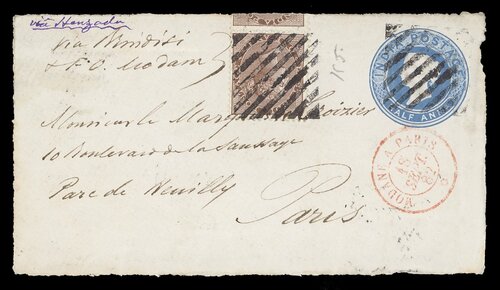 via Henzada
via Brindisi
& F. O. Modane
Monsieur le Marquis
10 Boulevard de la Saussaye
Parc de Neuilly
Paris
INDIA POSTAGE
HALF ANNA
MODANE A PARIS